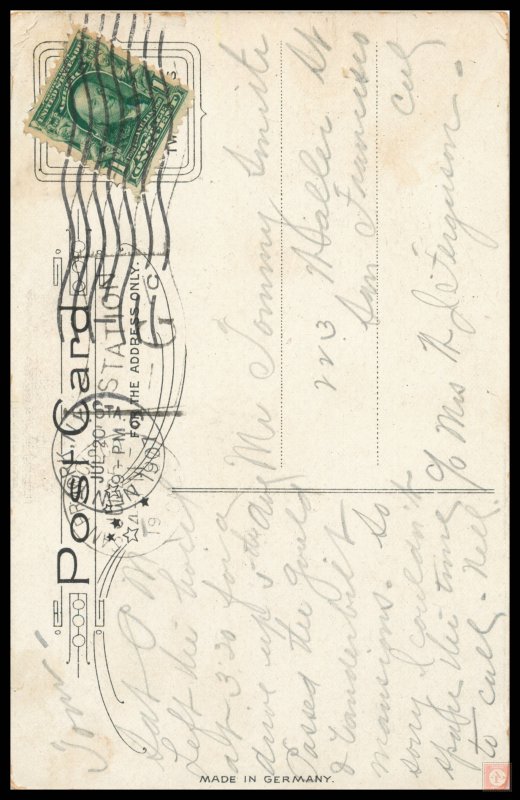 Post Card
FOR THE ADDRESS ONLY.
STATION
G
JUL 20
9-PM
1907
N.Y.
Tom
Sat P M
Left the hotel
at 3 30 for a
drive up 5th Ave
Passed the Gould
& Vanderbilt
mansions. So
sorry I couldn't
spare the time
to call. Nell.
Mr Tommy Smith
Haller St
San Francisco
Cal
c/o Mrs H J Ferguson.
MADE IN GERMANY.